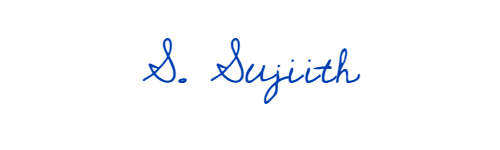 S. Sujiith